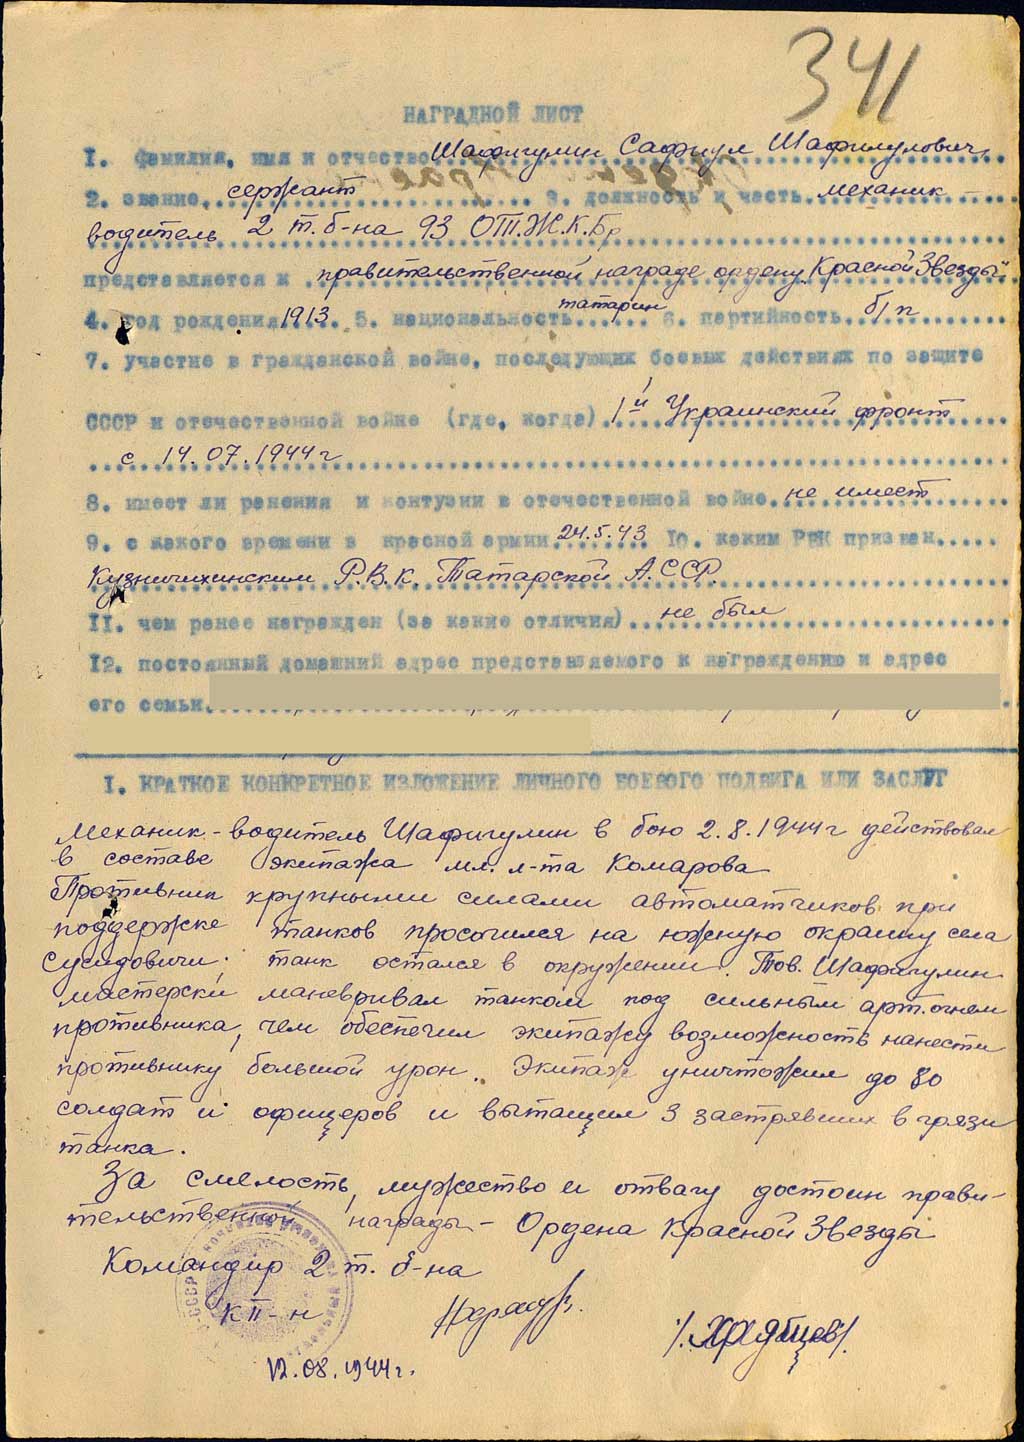 341
НАГРАДНОЙ ЛИСТ
I. Фамилия, имя и отчество Шафигулин Сафиул Шафигулович
2. звание сержант 3. должность и часть механик
водитель 2 т.б-на 93 ОТ.Ж.К.Бр
представляется к правительственной награде ордену "Красной Звезды"
4. год рождения 1913 5. национальность татарин 6. партийность б/п
7. участие в гражданской войне, последующих боевых действиях по защите
СССР и отечественной войне (где, когда) 1й Украинский фронт
с 14.07.1944г
8. имеет ли ранения и контузии в отечественной войне не имеет
9. с какого времени в красной армии 24.5.43 Iо. каким РВК призван
Кузничихинским Р.В.К. Татарской А.ССР.
II. чем ранее награжден (за какие отличия) не был
I2. постоянный домашний адрес представляемого к награждению и адрес
его семьи
I. КРАТКОЕ КОНКРЕТНОЕ ИЗЛОЖЕНИЕ ЛИЧНОГО БОЕВОГО ПОДВИГА ИЛИ ЗАСЛУГ
Механик-водитель Шафигулин в бою 2.8.1944г действовал
в составе экипажа мл. л-та Комарова
Противник крупными силами автоматчиков при
поддержке танков просочился на южную окраину села
Сусидовичи; танк остался в окружении. Тов. Шафигулин
мастерски маневривал танком под сильным арт.огнем
противника, чем обеспечил экипажу возможность нанести
противнику большой урон. Экипаж уничтожил до 80
солдат и офицеров и вытащил 3 застрявших в грязи
танка.
За смелость, мужество и отвагу достоин прави-
тельственной награды - Ордена Красной Звезды
Командир 2 т. б-на
к-н
/Хрябцев/.
12.08.1944г.